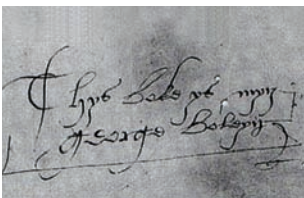 Thys boke ys myn
George Boleyn